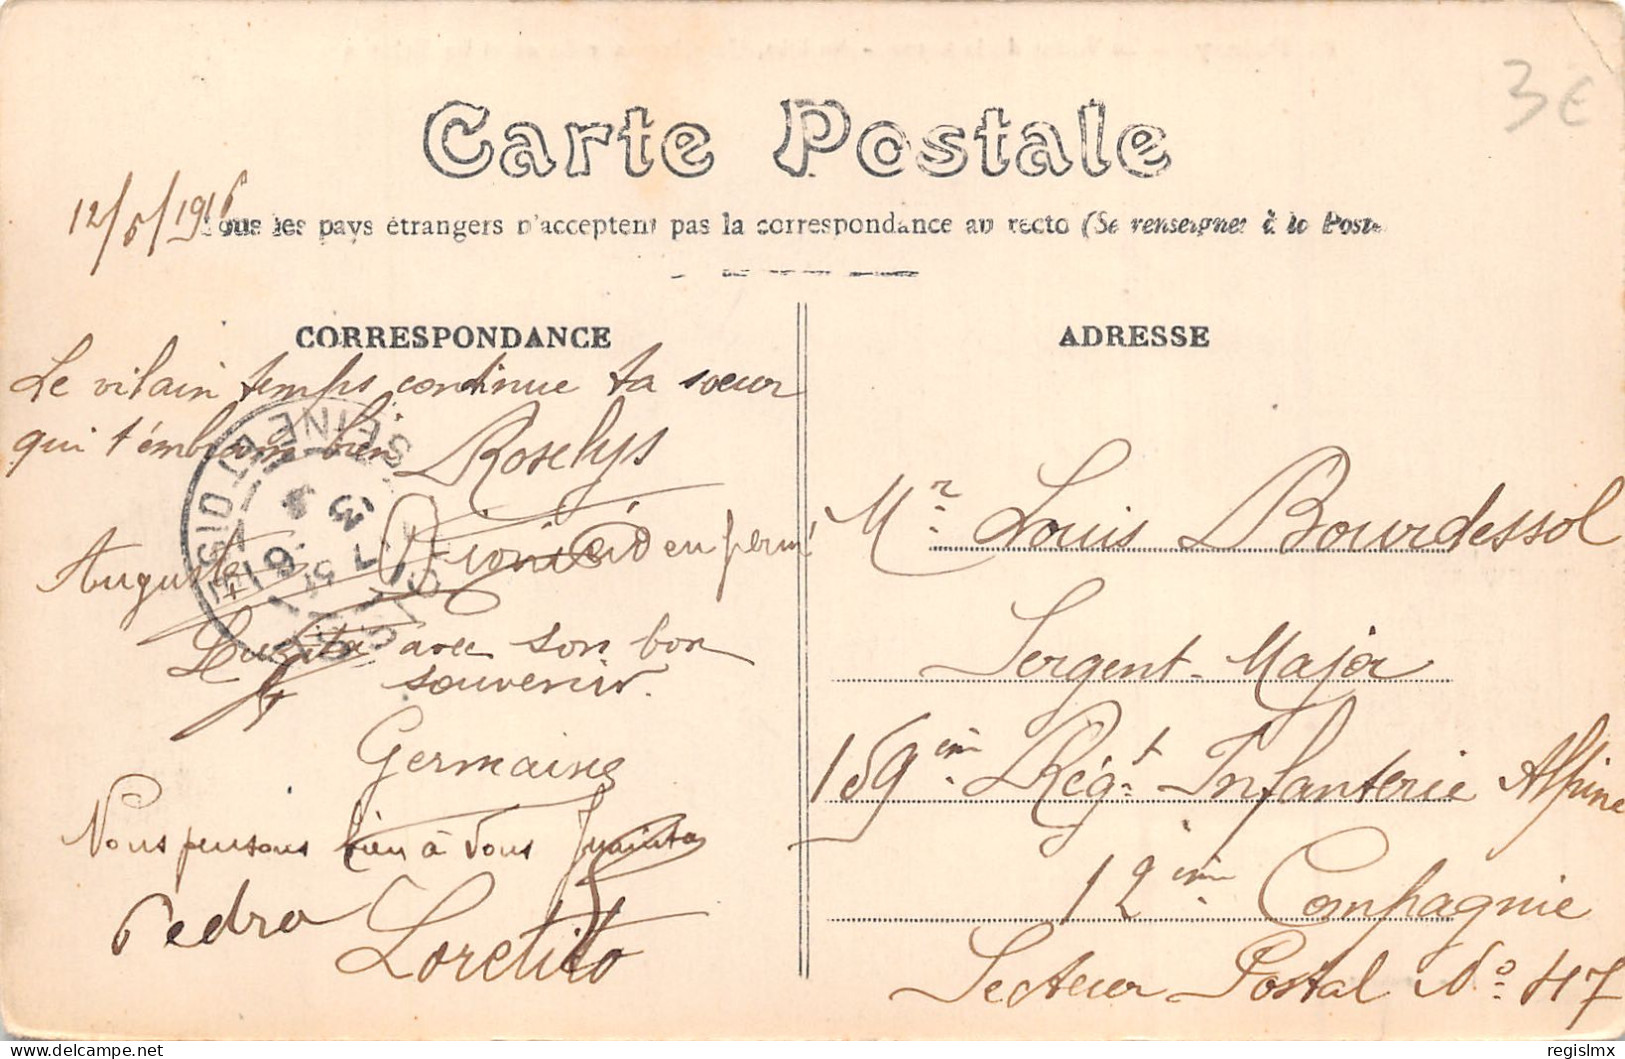 3€
Carte Postale
12/5/1916
Tous les pays étrangers n'acceptent pas la correspondance au recto (Se renseigner à la Poste
CORRESPONDANCE
Le vilain temps continue ta soeur
qui t'embrasse bien Roselys
Auguste Dionisio en permi
avec son bon
souvenir.
Germaine
Nous pensons bien à vous Juanita
Pedro
Loretito
SEINE ET OISE
13
5
16
ADRESSE
Mr Louis Bourdessol
Sergent-Major
159ème Régt Infanterie Alpine
12ème Compagnie
Secteur Postal No 47
regislmx
delcampe.net